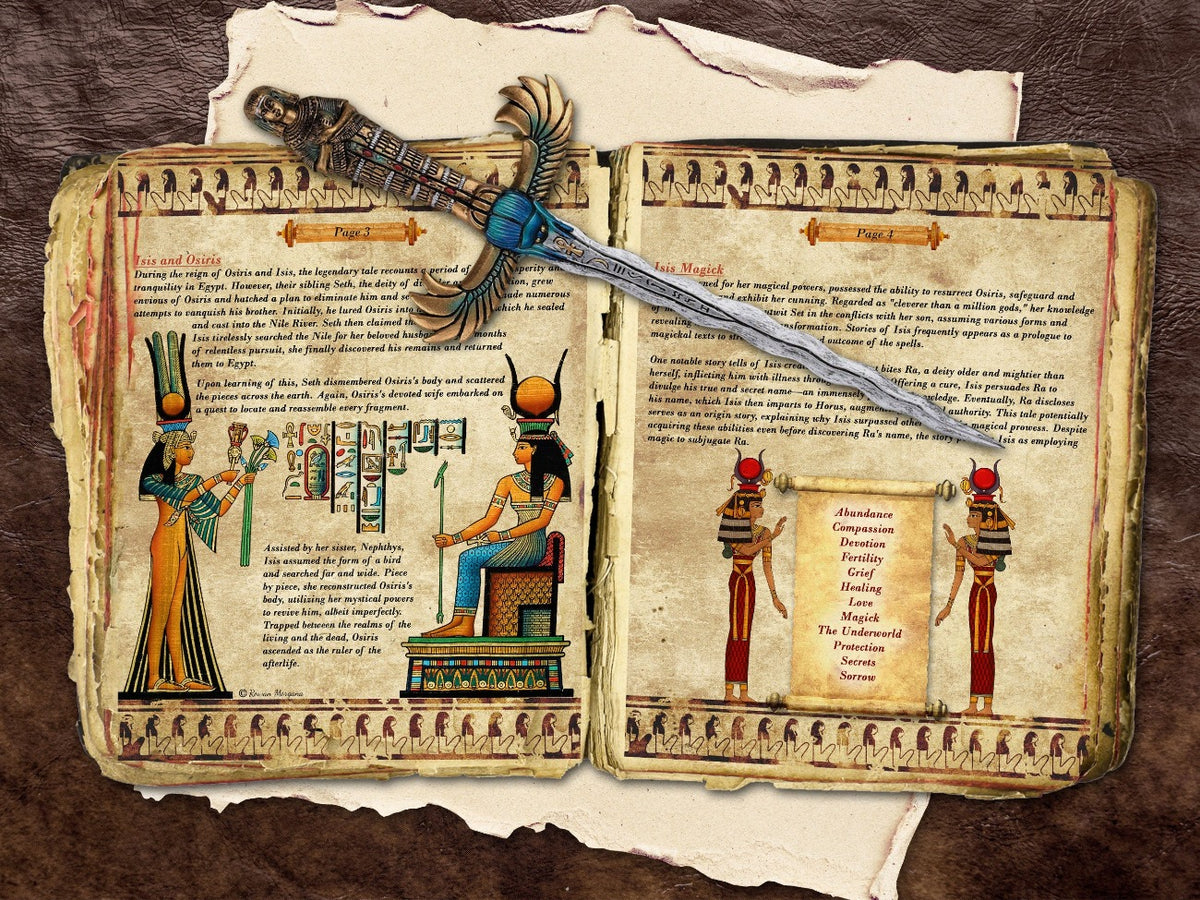 Page 3
Isis and Osiris
During the reign of Osiris and Isis, the legendary tale recounts a period of
tranquility in Egypt. However, their sibling Seth, the deity of grew
envious of Osiris and hatched a plan to eliminate him and made numerous
attempts to vanquish his brother. Initially, he lured Osiris into which he sealed
and cast into the Nile River. Seth then claimed
Isis tirelessly searched the Nile for her beloved months
of relentless pursuit, she finally discovered his remains and returned
them to Egypt.
Upon learning of this, Seth dismembered Osiris's body and scattered
the pieces across the earth. Again, Osiris's devoted wife embarked on
a quest to locate and reassemble every fragment.
Assisted by her sister, Nephthys,
Isis assumed the form of a bird
and searched far and wide. Piece
by piece, she reconstructed Osiris's
body, utilizing her mystical powers
to revive him, albeit imperfectly.
Trapped between the realms of the
living and the dead, Osiris
ascended as the ruler of the
afterlife.
© Rowan Morgana
Page 4
Isis Magick
for her magical powers, possessed the ability to resurrect Osiris, safeguard and
and exhibit her cunning. Regarded as "cleverer than a million gods," her knowledge
Set in the conflicts with her son, assuming various forms and
revealing Stories of Isis frequently appears as a prologue to
magickal texts to outcome of the spells.
One notable story tells of Isis bites Ra, a deity older and mightier than
herself, inflicting him with illness Offering a cure, Isis persuades Ra to
divulge his true and secret name—an immensely Eventually, Ra discloses
his name, which Isis then imparts to Horus, authority. This tale potentially
serves as an origin story, explaining why Isis surpassed magical prowess. Despite
acquiring these abilities even before discovering Ra's name, the story Isis as employing
magic to subjugate Ra.
Abundance
Compassion
Devotion
Fertility
Grief
Healing
Love
Magick
The Underworld
Protection
Secrets
Sorrow